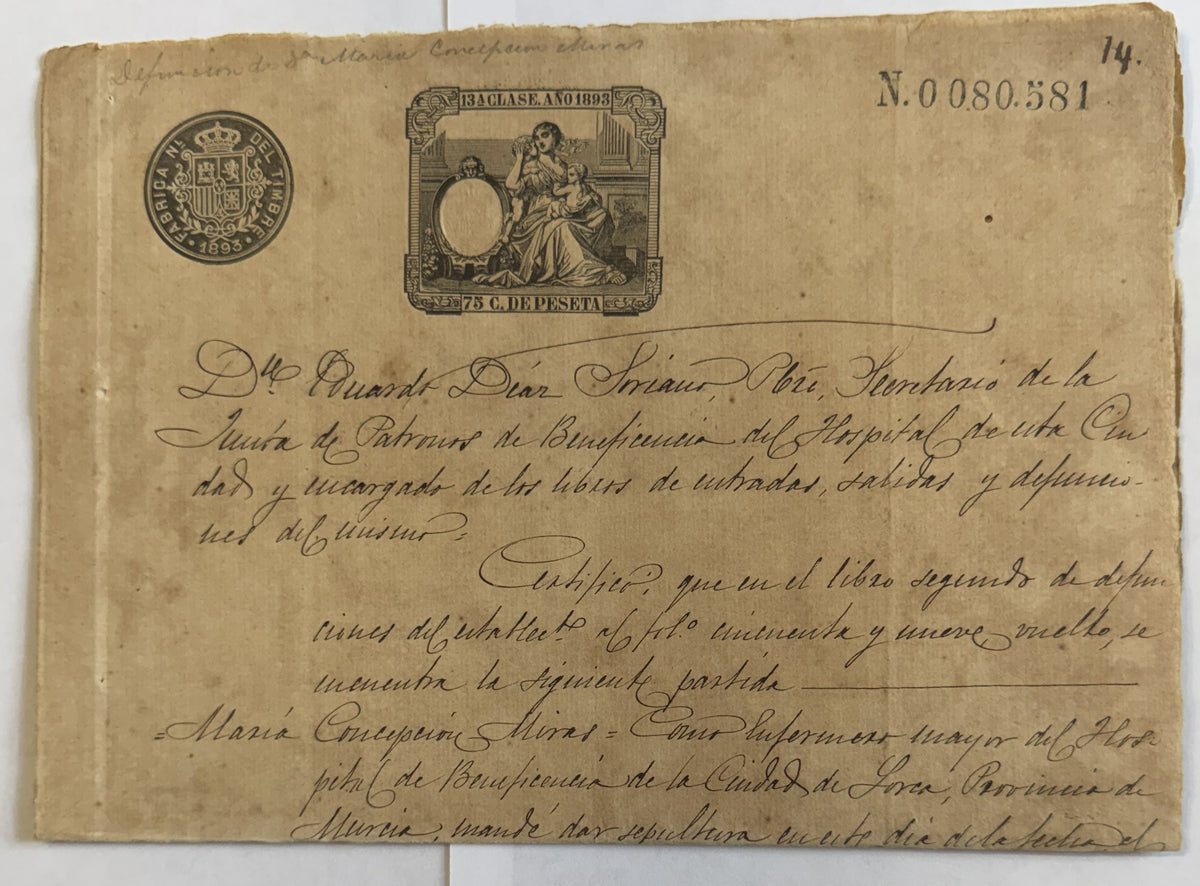 Defunción de Dª María Concepción Miras
14.
N.0080.581
13ª CLASE. AÑO 1893
FABRICA Nᴸ DEL TIMBRE
· 1893 ·
75 C. DE PESETA
Eduardo Díaz Soriano, Pbrō, Secretario de la
Junta de Patronos de Beneficencia del Hospital de esta Ciu
dad y encargado de los libros de entradas, salidas y defuncio-
nes del mismo=
Certifico; que en el libro segundo de defun
ciones del establectº al folº cincuenta y nueve, vuelto, se
encuentra la siguiente partida
=María Concepción Miras= Como Enfermero mayor del Hos-
pital de Beneficencia de la Ciudad de Lorca, Provincia de
Murcia, mandé dar sepultura en este día de la fecha el